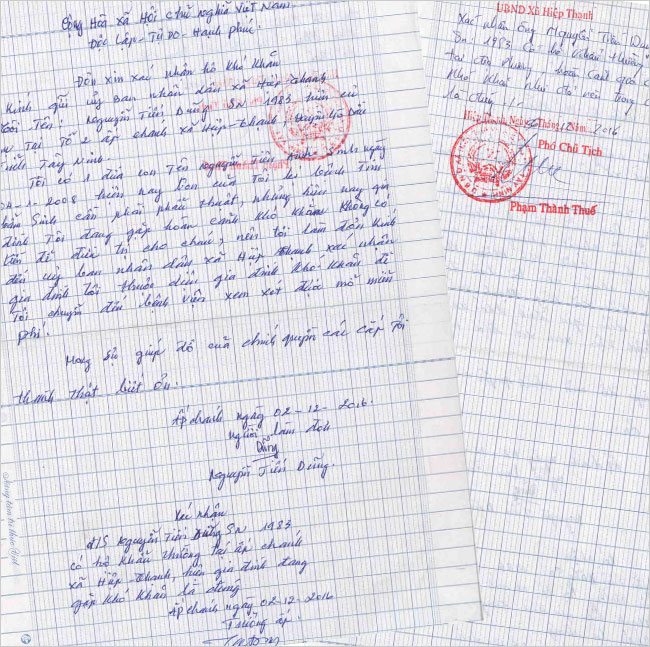 Cộng Hòa xã Hội chủ nghĩa Việt Nam
Độc Lập - Tự Do - Hạnh Phúc!
Đơn xin xác nhận hộ khó khăn
Kính gửi ủy ban nhân dân xã Hiệp-Thạnh
Tôi Tên: Nguyễn Tiến Dũng SN 1983, hiện cư
Tại Tổ 2 ấp chánh xã Hiệp-Thạnh, Huyện Gò Dầu
Tỉnh Tây Ninh.
Tôi có 1 đứa con Tên Nguyễn Tiến Anh sinh ngày
-1-2008-hiện nay con của Tôi bị bệnh Tim
bẩm Sinh cần phải phẩu thuật, nhưng hiện nay gia
đình Tôi đang gặp hoàn cảnh khó khăn không có
tiền để điều trị cho cháu, nên tôi làm đơn kính
đến uỷ ban nhân dân xã Hiệp Thanh xác nhận
gia đình tôi thuộc diện gia đình khó khăn để
Tôi chuyển đến bệnh viện xem xét được mổ miễn
phí.
Mong sự giúp đỡ của chính quyền các cấp Tôi
thành thật biết ơn.
Ấp chánh ngày 02-12-2016
người làm đơn
Dũng
Nguyễn Tiến Dũng.
Xác nhận
Nguyễn Tiến Dũng SN 1983
có hộ khẩu thường tại ấp chánh
xã Hiệp-Thạnh, hiện gia đình đang
gặp khó khăn là đúng
Ấp chánh ngày 02-12-2016
Trưởng ấp.
UBND Xã Hiệp Thạnh
Xác nhận ông Nguyễn Tiến
Sn: 1983 có hộ khẩu thường
tại địa phương, hoàn cảnh gia
khó khăn như đã nêu trong
là đúng
Hiệp Thạnh, Ngày 06 Tháng 12 2016
Phó Chủ Tịch
Phạm Thành Thuế